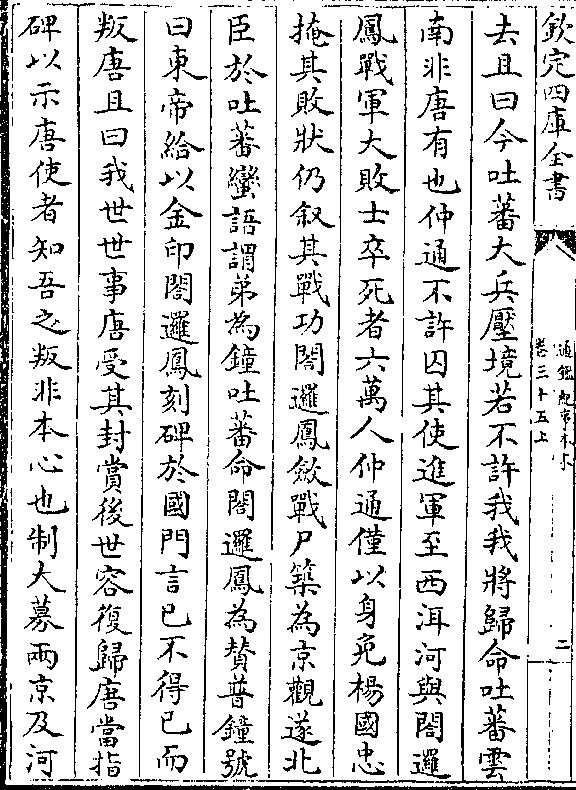 欽定四庫全書
通鑑紀事本末
卷三十五上
二
去且曰今吐蕃大兵壓境若不許我我將歸命吐蕃雲
南非唐有也仲通不許囚其使進軍至西洱河與閤邏
鳳戰軍大敗士卒死者六萬人仲通僅以身免楊國忠
掩其敗狀仍叙其戰功閤邏鳳斂戰尸築為京觀遂北
臣於吐蕃蠻語謂弟為鐘吐蕃命閤邏鳳為贊普鐘號
曰東帝給以金印閤邏鳳刻碑於國門言已不得已而
叛唐且曰我世世事唐受其封賞後世容復歸唐當指
碑以示唐使者知吾之叛非本心也制大募兩京及河